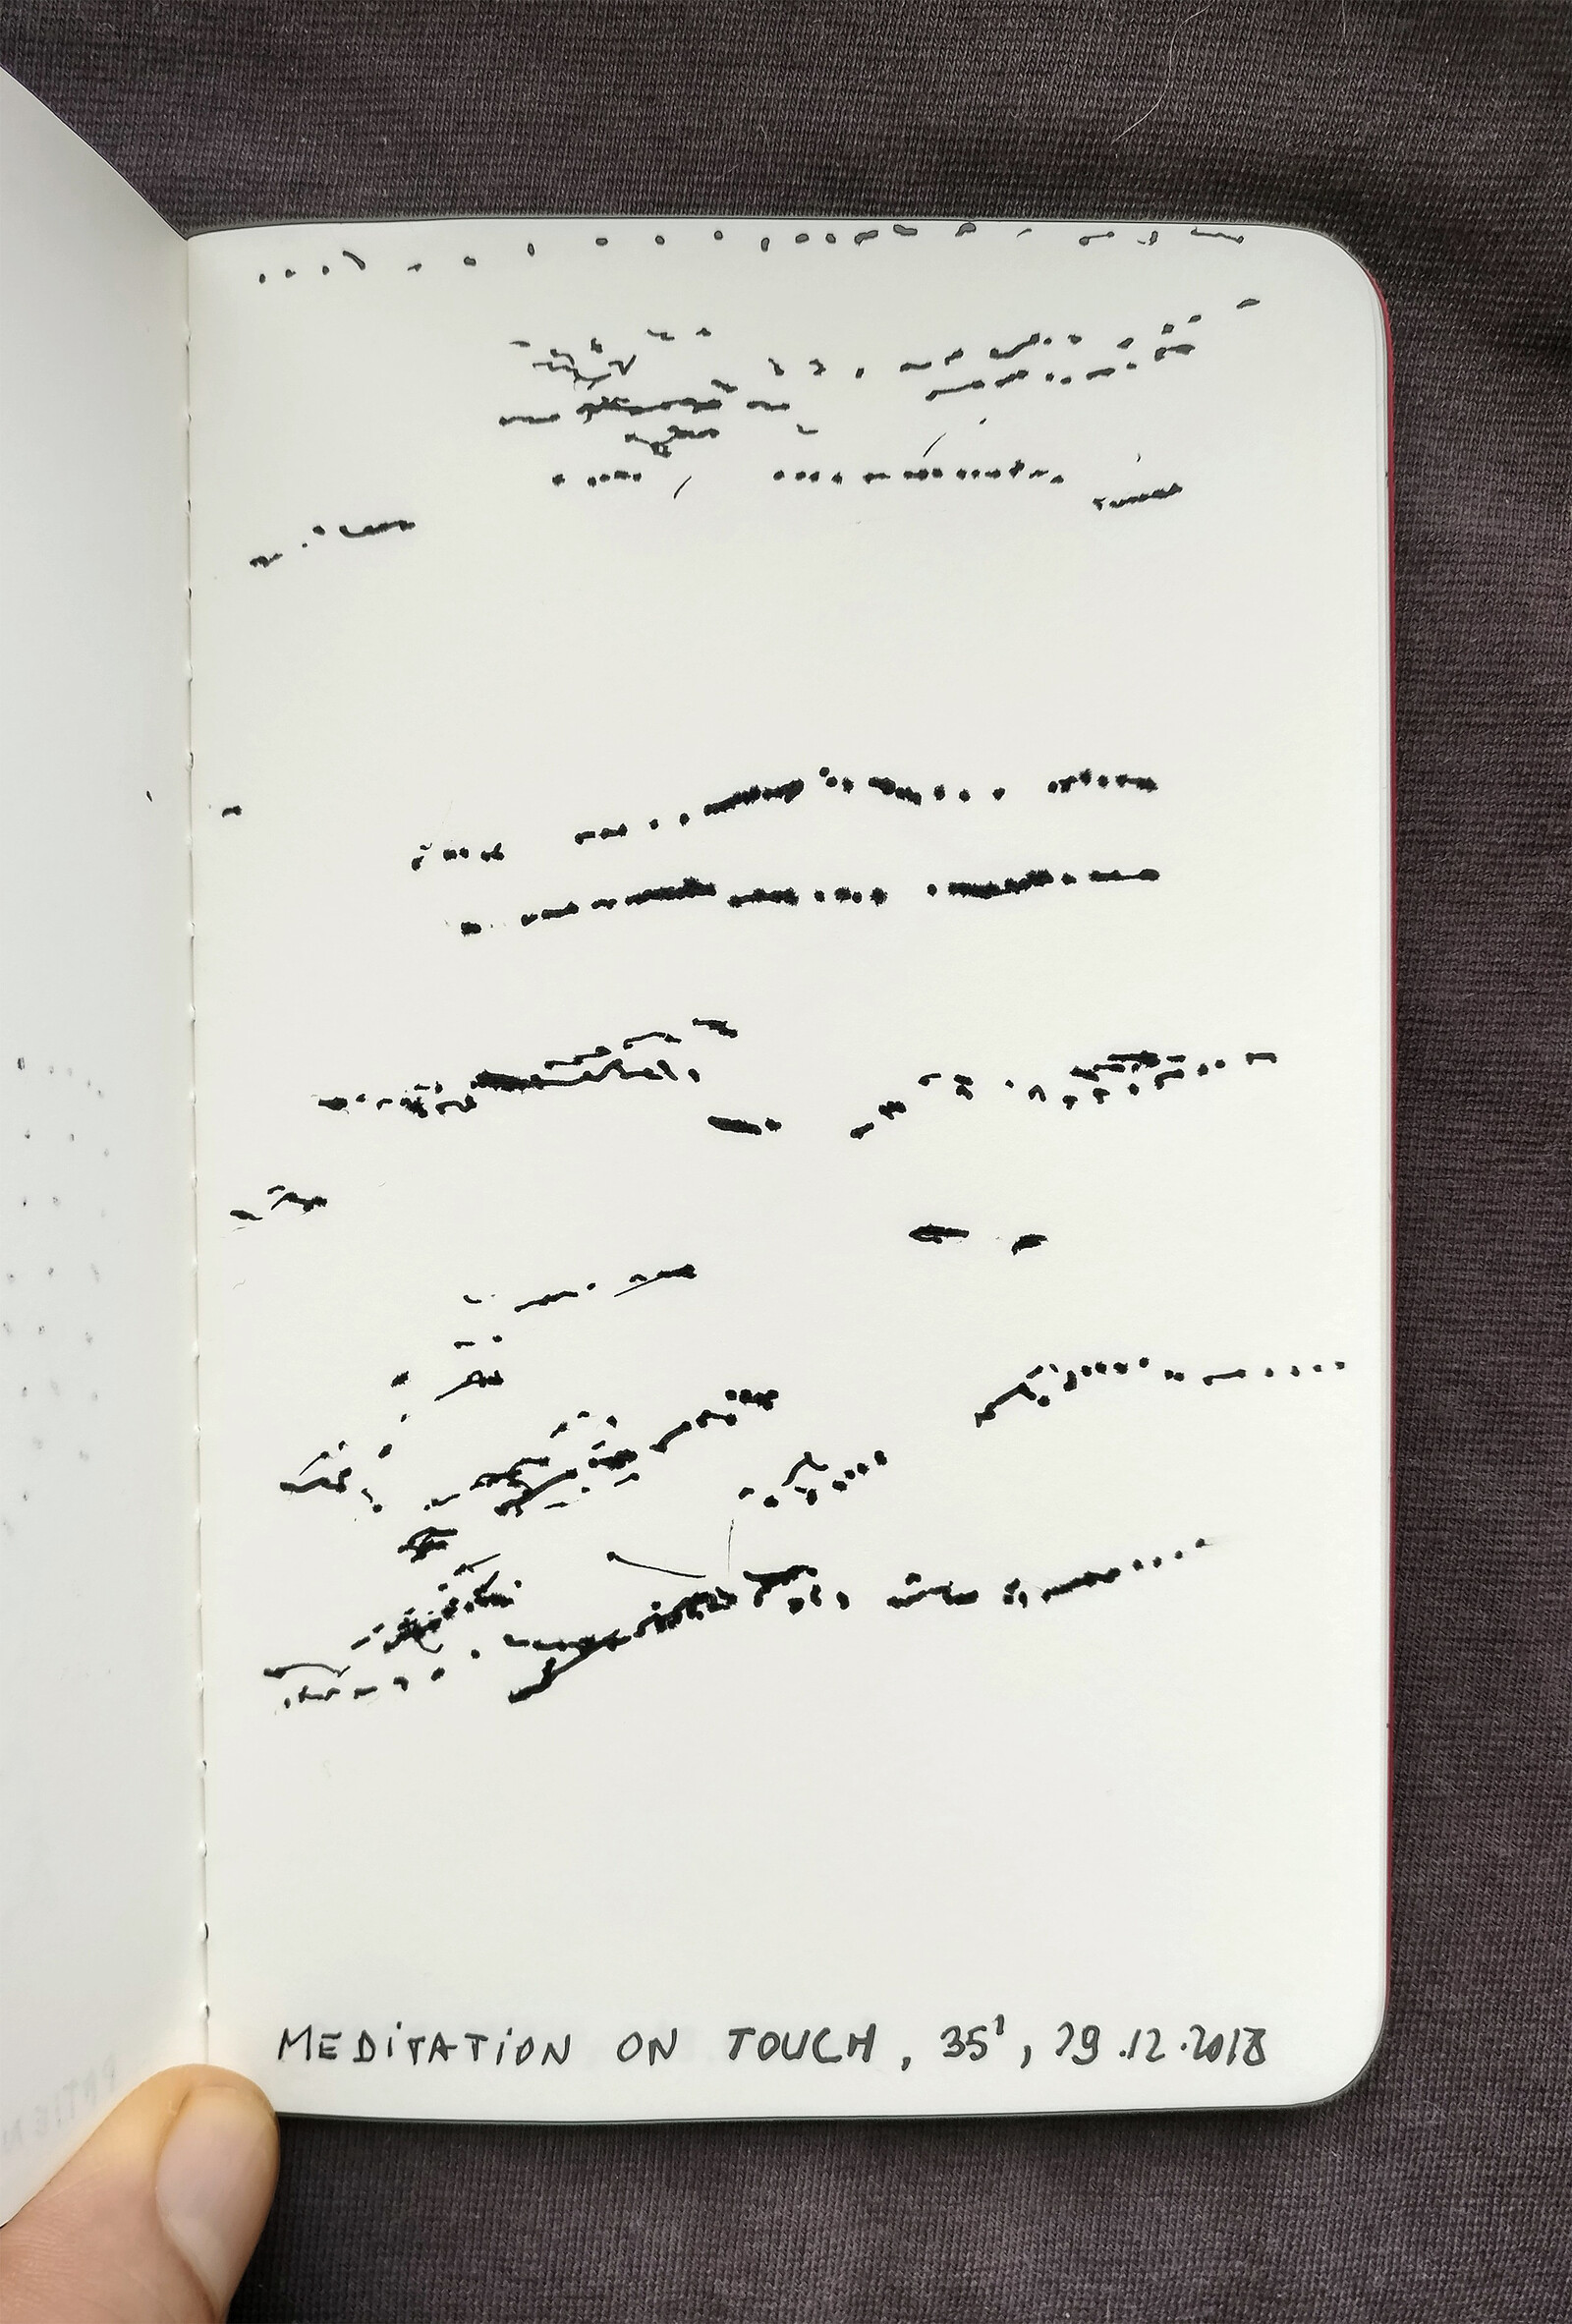 MEDITATION ON TOUCH, 35', 29.12.2018